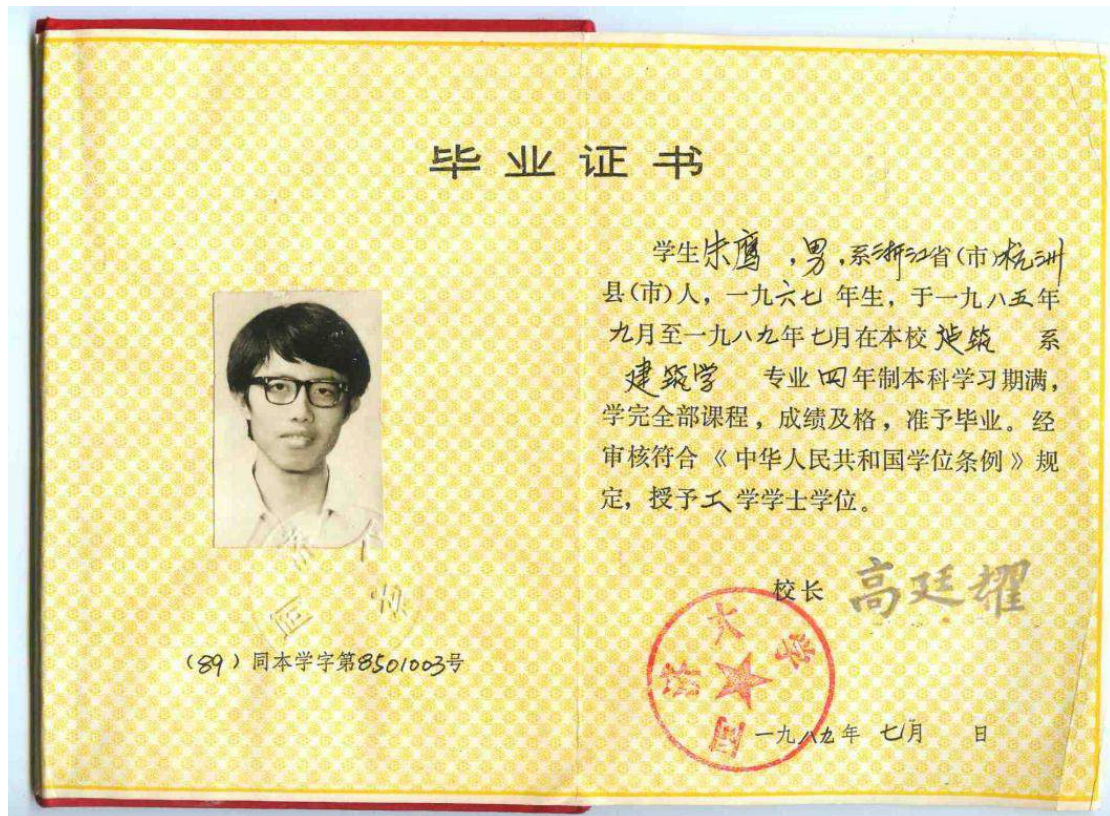 毕业证书
学生朱鹰，男，系浙江省(市)杭州
县(市)人，一九六七年生，于一九八五年
九月至一九八九年七月在本校建筑 系
建筑学 专业四年制本科学习期满，
学完全部课程，成绩及格，准予毕业。经
审核符合《中华人民共和国学位条例》规
定，授予工学学士学位。
校长 高廷耀
同济大学
(89)同本学字第8501003号
一九八九年 七月 日